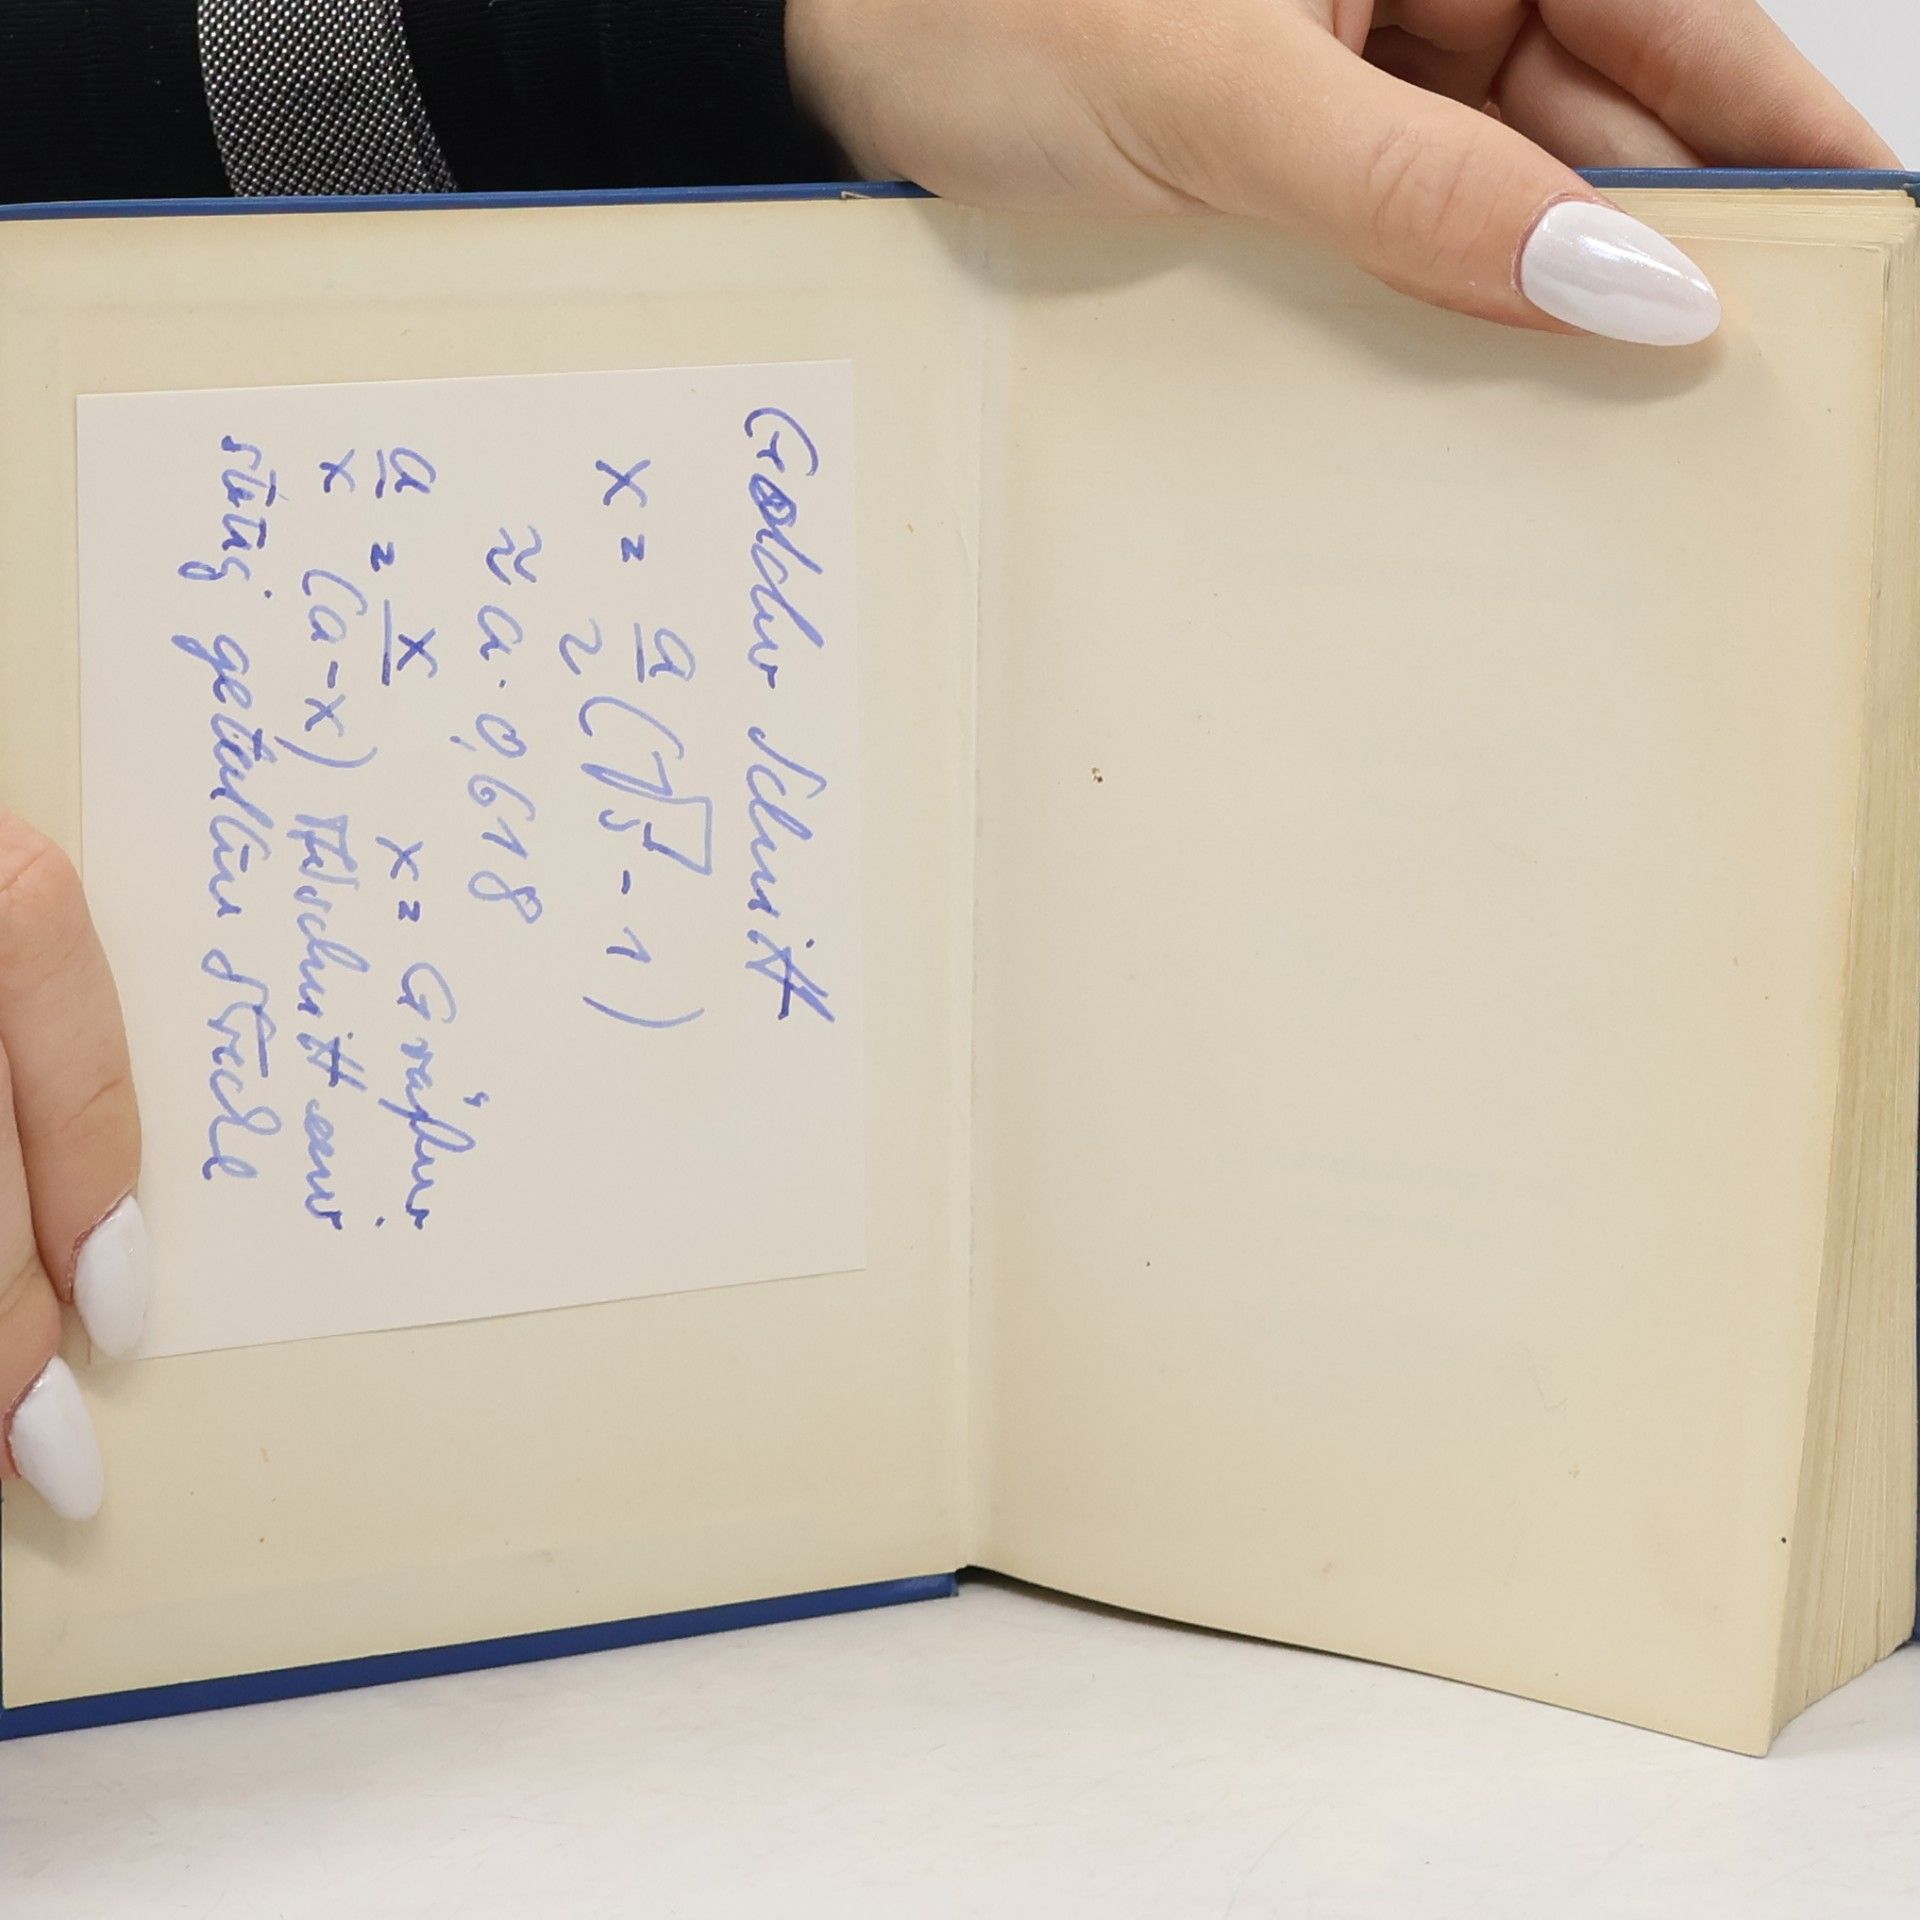 Goldener Schnitt
x = a/2 (√5 - 1)
≈ a · 0,618
a/x = x/(a-x) x = Größerer
Abschnitt einer
stetig geteilten Strecke